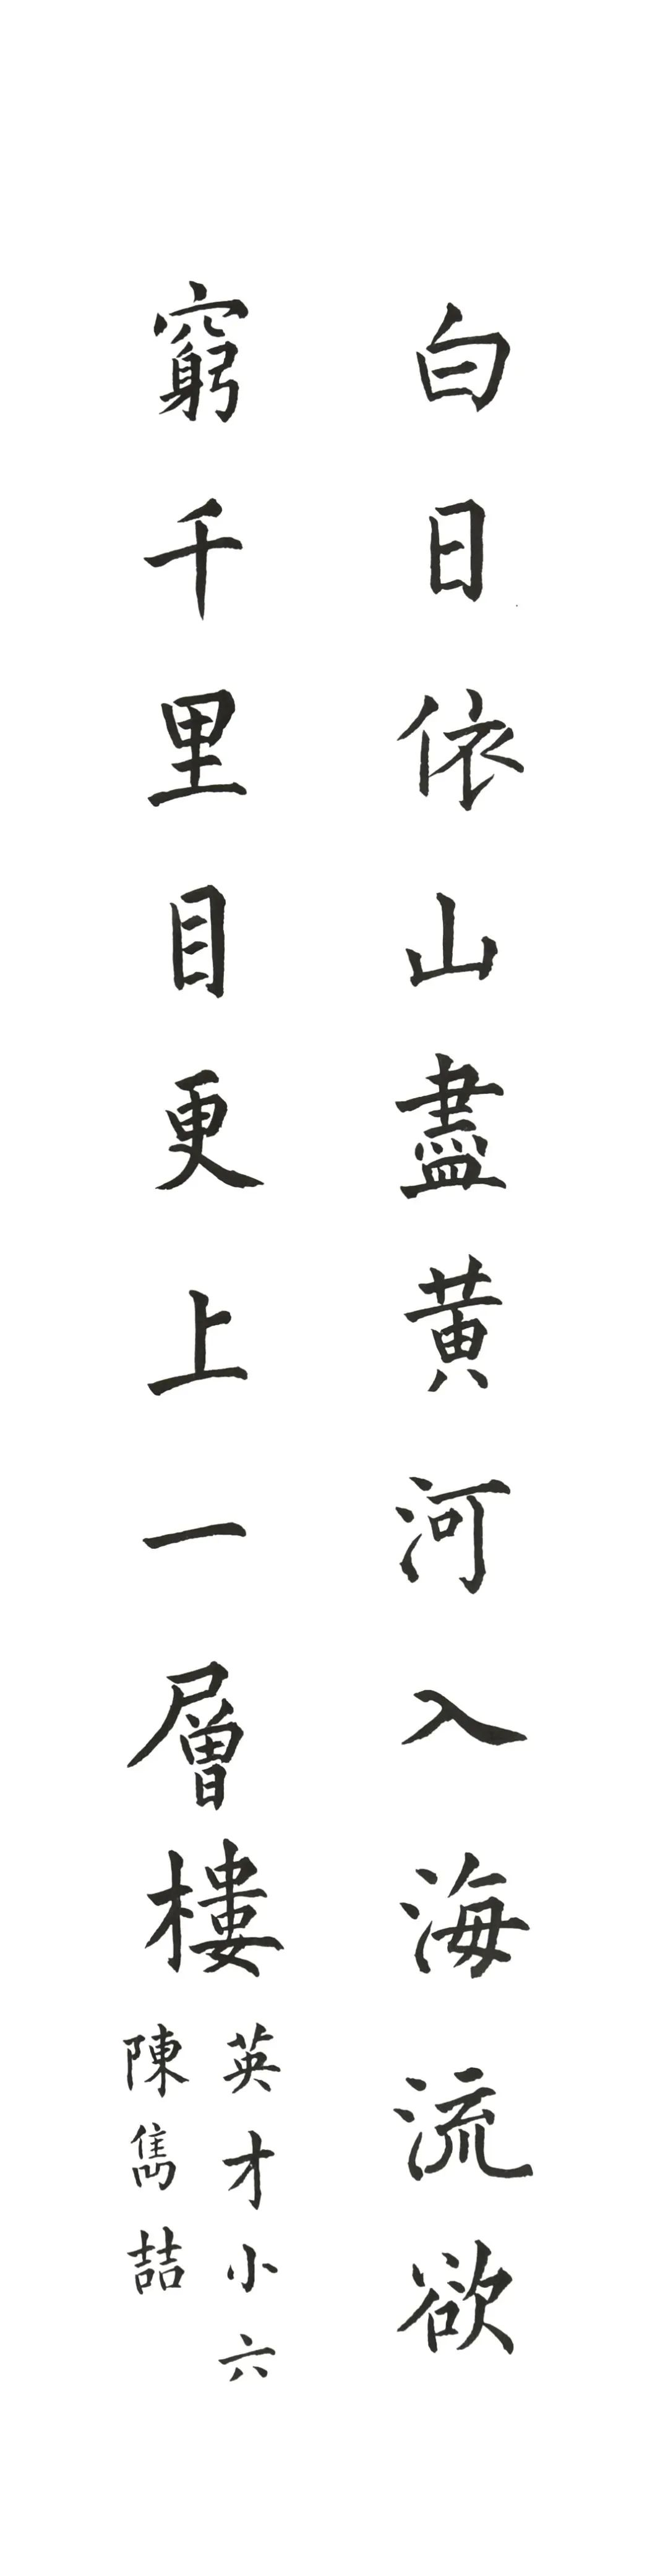 白日依山盡黃河入海流欲
窮千里目更上一層樓
英才小六
陳雋喆